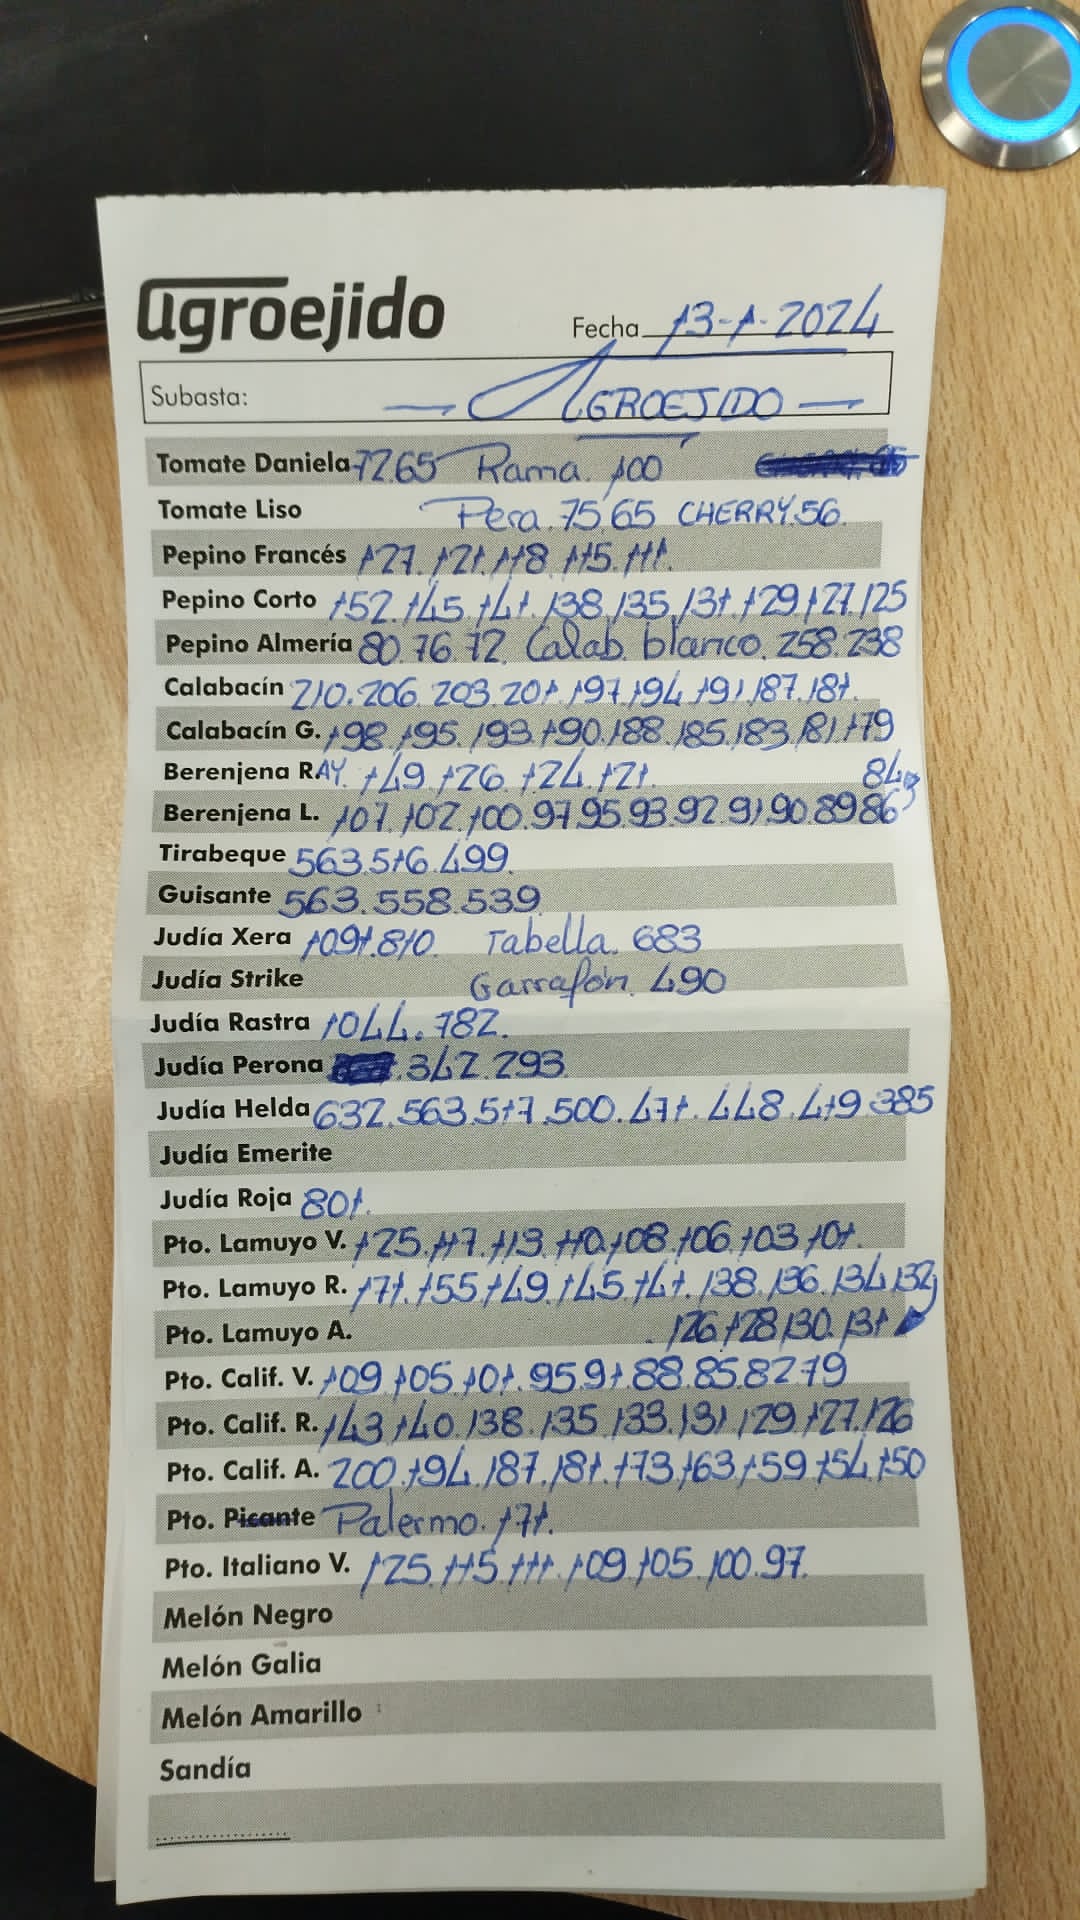 agroejido
Fecha 13-1-2024
Subasta: — AGROEJIDO —
Tomate Daniela 72.65 Rama. 100
Tomate Liso Pera. 75.65 CHERRY.56.
Pepino Francés 127. 121. 118. 115. 111.
Pepino Corto 152. 145. 141. 138. 135. 131. 129. 127. 125
Pepino Almería 80. 76. 72. Calab. blanco. 258. 238
Calabacín 210. 206. 203. 201. 197. 194. 191. 187. 181.
Calabacín G. 198. 195. 193. 190. 188. 185. 183. 181. 179
Berenjena RAY. 149. 126. 124. 121. 84
Berenjena L. 107. 102. 100. 97. 95. 93. 92. 91. 90. 89 86
Tirabeque 563. 516. 499.
Guisante 563. 558. 539
Judía Xera 1091. 810. Tabella. 683
Judía Strike Garrafón. 490
Judía Rastra 1044. 782.
Judía Perona . 342. 293
Judía Helda 632. 563. 517. 500. 471. 448. 419. 385
Judía Emerite
Judía Roja 801.
Pto. Lamuyo V. 125. 117. 113. 110. 108. 106. 103. 101.
Pto. Lamuyo R. 171. 155. 149. 145. 141. 138. 136. 134. 132
Pto. Lamuyo A. . 126. 128. 130. 131
Pto. Calif. V. 109. 105. 101. 95. 91. 88. 85. 82 79
Pto. Calif. R. 143. 140. 138. 135. 133. 131. 129. 127. 126
Pto. Calif. A. 200. 194. 187. 181. 173. 163. 159. 154. 150
Pto. Picante Palermo. 171.
Pto. Italiano V. 125. 115. 111. 109. 105. 100. 97.
Melón Negro
Melón Galia
Melón Amarillo
Sandía